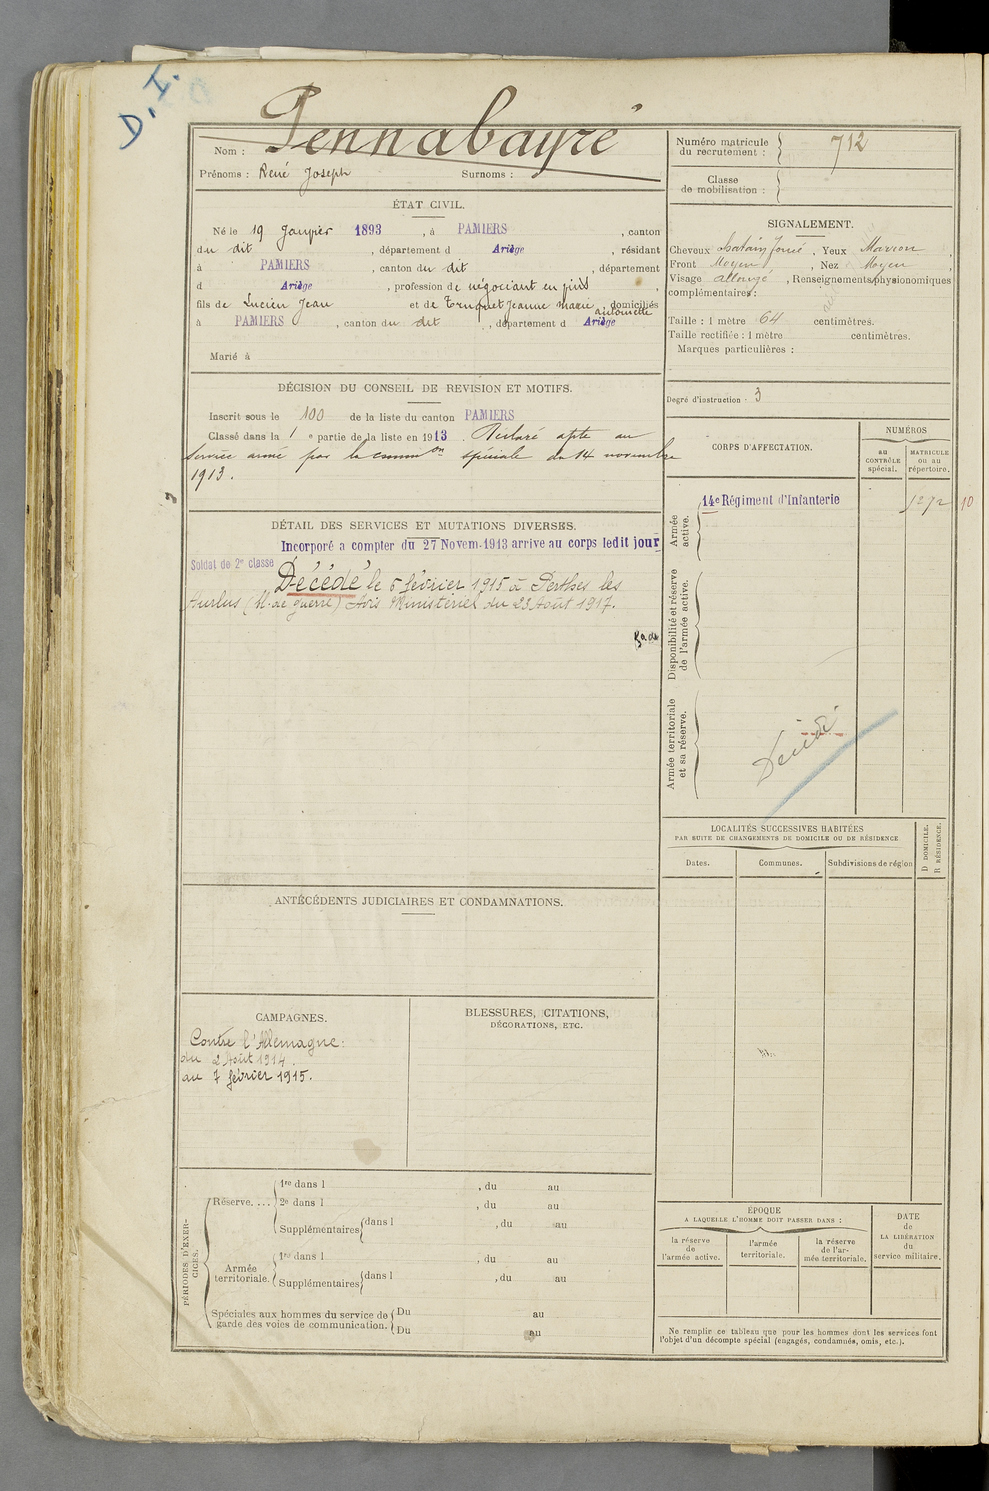 D. I.
Pennabayré
Nom :
Prénoms : René Joseph Surnoms :
Numéro matricule du recrutement : 712
Classe de mobilisation :
ÉTAT CIVIL.
Né le 19 Janvier 1893, à PAMIERS, canton
du dit, département d Ariège, résidant
à PAMIERS, canton du dit, département
d Ariège, profession de négociant en
fils de Lucien Jean et de Jeanne Marie Antoinette, domiciliés
à PAMIERS, canton du dit, département d Ariège
Marié à
SIGNALEMENT.
Cheveux chatain foncé, Yeux Marron,
Front Moyen, Nez Moyen,
Visage allongé, Renseignements physionomiques
complémentaires :
Taille : 1 mètre 64 centimètres.
Taille rectifiée : 1 mètre centimètres.
Marques particulières :
Degré d'instruction · 3
DÉCISION DU CONSEIL DE REVISION ET MOTIFS.
Inscrit sous le 100 de la liste du canton PAMIERS
Classé dans la 1e partie de la liste en 1913. Déclaré apte au
service armé par la common spéciale du 14 novembre
1913.
CORPS D'AFFECTATION.
NUMÉROS
au CONTRÔLE spécial.
MATRICULE ou au répertoire.
Armée active.
14e Régiment d'Infanterie 1272 10
Disponibilité et réserve de l'armée active.
Armée territoriale et sa réserve.
Décédé
DÉTAIL DES SERVICES ET MUTATIONS DIVERSES.
Incorporé a compter du 27 Novem. 1913 arrive au corps ledit jour
Soldat de 2e classe
Décédé le 5 février 1915 à Perthes les
Hurlus (M. de guerre) Avis Ministériel du 23 Août 1917.
LOCALITÉS SUCCESSIVES HABITÉES
PAR SUITE DE CHANGEMENTS DE DOMICILE OU DE RÉSIDENCE
Dates.
Communes.
Subdivisions de région
D DOMICILE.
R RÉSIDENCE.
ANTÉCÉDENTS JUDICIAIRES ET CONDAMNATIONS.
CAMPAGNES.
Contre l'Allemagne :
du 2 Août 1914.
au 7 février 1915.
BLESSURES, CITATIONS,
DÉCORATIONS, ETC.
PÉRIODES D'EXERCICES.
Réserve....
1re dans l , du au
2e dans l , du au
Supplémentaires dans l , du au
Armée territoriale.
1re dans l , du au
Supplémentaires dans l , du au
Spéciales aux hommes du service de
garde des voies de communication.
Du au
Du au
ÉPOQUE
A LAQUELLE L'HOMME DOIT PASSER DANS :
la réserve de l'armée active.
l'armée territoriale.
la réserve de l'armée territoriale.
DATE de LA LIBÉRATION du service militaire.
Ne remplir ce tableau que pour les hommes dont les services font
l'objet d'un décompte spécial (engagés, condamnés, omis, etc.).